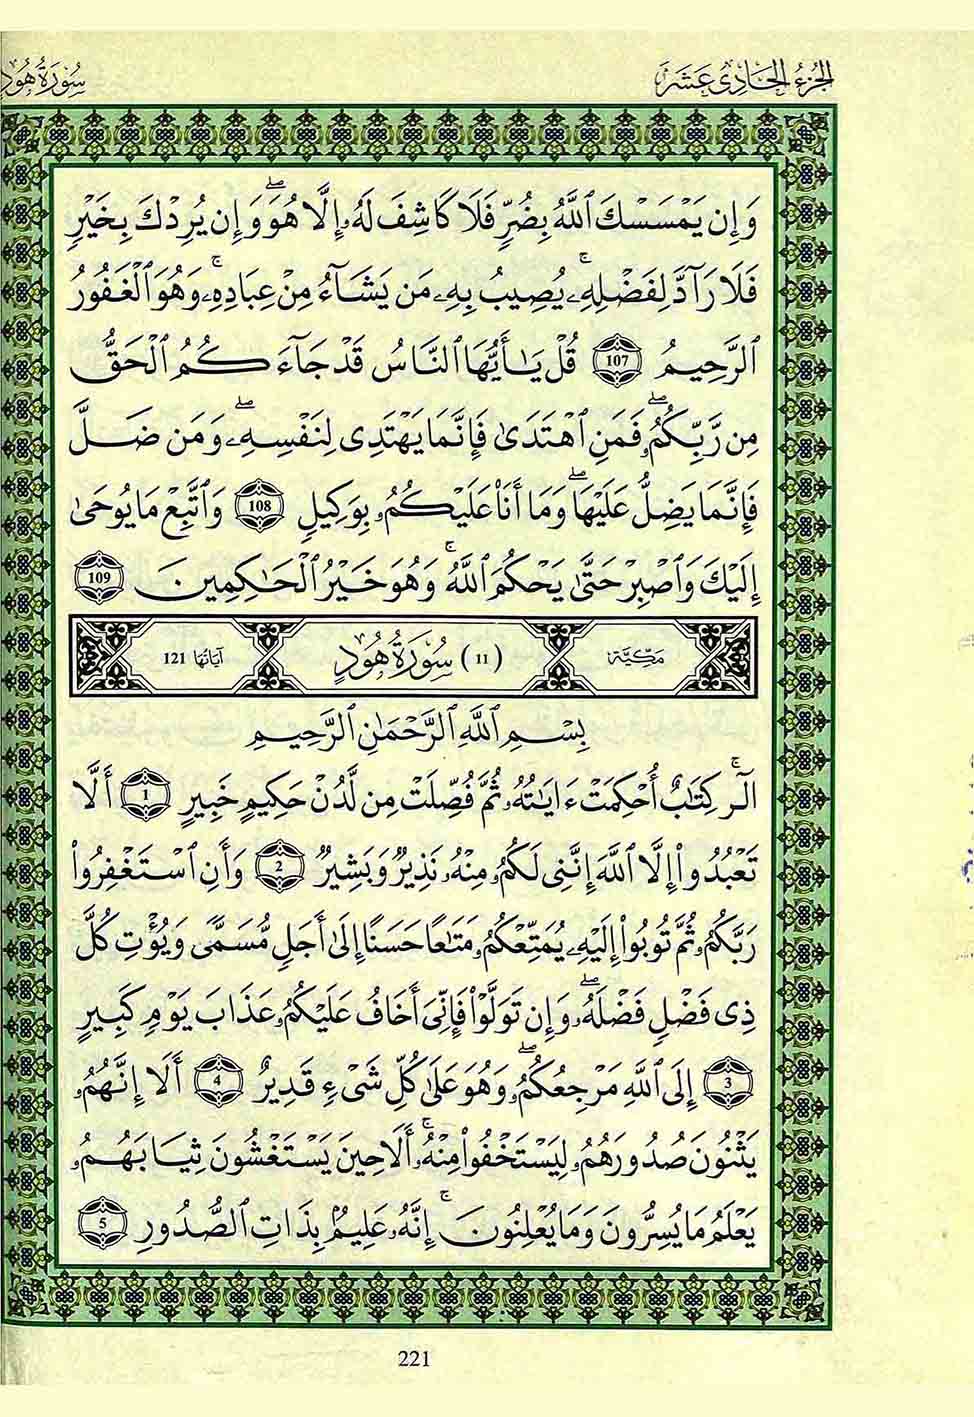 الجزء الحادي عشر
سورة هود
وَإِن يَمْسَسْكَ ٱللَّهُ بِضُرٍّ فَلَا كَاشِفَ لَهُۥ إِلَّا هُوَ ۖ وَإِن يُرِدْكَ بِخَيْرٍ
فَلَا رَآدَّ لِفَضْلِهِۦ ۚ يُصِيبُ بِهِۦ مَن يَشَآءُ مِنْ عِبَادِهِۦ ۚ وَهُوَ ٱلْغَفُورُ
ٱلرَّحِيمُ 107 قُلْ يَـٰٓأَيُّهَا ٱلنَّاسُ قَدْ جَآءَكُمُ ٱلْحَقُّ
مِن رَّبِّكُمُۥ ۖ فَمَنِ ٱهْتَدَىٰ فَإِنَّمَا يَهْتَدِى لِنَفْسِهِۦ ۖ وَمَن ضَلَّ
فَإِنَّمَا يَضِلُّ عَلَيْهَا ۖ وَمَآ أَنَا۠ عَلَيْكُمُۥ بِوَكِيلٍ 108 وَٱتَّبِعْ مَا يُوحَىٰ
إِلَيْكَ وَٱصْبِرْ حَتَّىٰ يَحْكُمَ ٱللَّهُ ۚ وَهُوَ خَيْرُ ٱلْحَـٰكِمِينَ 109
مكية (11) سُورَةُ هُودٍ آياتها 121
بِسْمِ ٱللَّهِ ٱلرَّحْمَـٰنِ ٱلرَّحِيمِ
الٓر ۚ كِتَـٰبٌ أُحْكِمَتْ ءَايَـٰتُهُۥ ثُمَّ فُصِّلَتْ مِن لَّدُنْ حَكِيمٍ خَبِيرٍ 1 أَلَّا
تَعْبُدُوٓا۟ إِلَّا ٱللَّهَ إِنَّنِى لَكُمُۥ مِنْهُۥ نَذِيرٌ وَبَشِيرٌ 2 وَأَنِ ٱسْتَغْفِرُوا۟
رَبَّكُمُۥ ثُمَّ تُوبُوٓا۟ إِلَيْهِۦ يُمَتِّعْكُمُۥ مَتَـٰعًا حَسَنًا إِلَىٰٓ أَجَلٍ مُّسَمًّى وَيُؤْتِ كُلَّ
ذِى فَضْلٍ فَضْلَهُۥ ۖ وَإِن تَوَلَّوْا۟ فَإِنِّىَ أَخَافُ عَلَيْكُمُۥ عَذَابَ يَوْمٍ كَبِيرٍ
3 إِلَى ٱللَّهِ مَرْجِعُكُمُۥ ۖ وَهُوَ عَلَىٰ كُلِّ شَىْءٍ قَدِيرٌ 4 أَلَآ إِنَّهُمُۥ
يَثْنُونَ صُدُورَهُمُۥ لِيَسْتَخْفُوا۟ مِنْهُ ۚ أَلَا حِينَ يَسْتَغْشُونَ ثِيَابَهُمُۥ
يَعْلَمُ مَا يُسِرُّونَ وَمَا يُعْلِنُونَ ۚ إِنَّهُۥ عَلِيمٌۢ بِذَاتِ ٱلصُّدُورِ 5
221